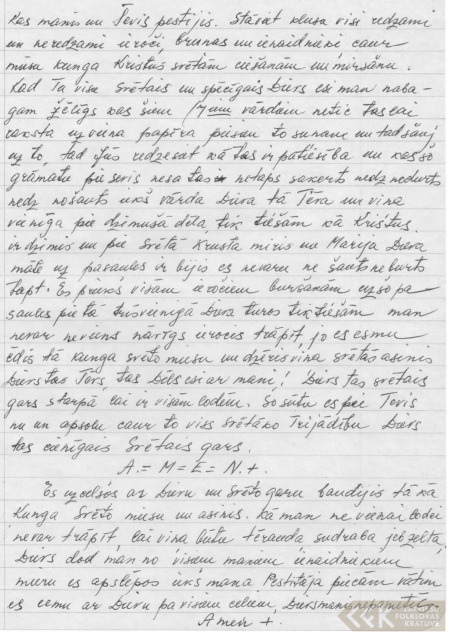 Kas mānis un Tevis pestījis. Stāvat klusa visi redzami
un neredzami ieroči, bruņas un ienaidnieki caur
mūsu kunga Kristus svētām ciešanām un miršanu.
Kad Ta visu svētais un spēcīgais Dievs esi man naba-
gam žēlīgs kas šiem vārdiem netic tas lai
raksta uz viena papīra piesien to sunane un tad šāuj
uz to, tad jūs redzēsat kā tas ir patiesība un kas šo
grāmatu pie sevis nesa tas netaps sakerts nedz nedurts
nedz nošauts iekš vārda Dieva tā Tēva un viņa
vienīga pie dzimušā dēla, tik tiešām kā Kristus
ir dzimis un pie svētā krusta miris un Marija Dieva
māte uz pasaules ir bijis es nevaru ne šauts ne burts
tapt. Es pieņems visām ieročiem buršanām uz šo pa-
saules pie tā trīsvienīgā Dieva turos tik tiešām man
nevar neviens nārīgs ierocis trāpīt, jo es esmu
ēdis tā kunga svēto miesu un dzēris viņa svētās asinis
Dievs tas Tēvs, tas Dēls esi ar mani! Dievs tas svētais
gars starpā lai ir visām lodēm. So sūtu es pie Tevis
nu un apsolu caur to viss svētāko Trijādību Dievs
tas cienīgais Svētais gars.
A.= M = E = N. +.
Es uzcelšos ar Dievu un Svēto garu baudījis tā kā
Kunga Svēto miesu un asinis. Kā man ne vienai lodei
nevar trāpīt, lai viņa būtu tērauda sudraba jeb zelta,
Dievs dod man no visiem maniem ienaidniekiem
mieru es apslēpos iekš mana Pestītāja piecām vātīm
es eemu ar Dievu pa visiem celiem, Dievs mani nepametīs.
Amen +.
FOLKLORAS
KRĀTUVE